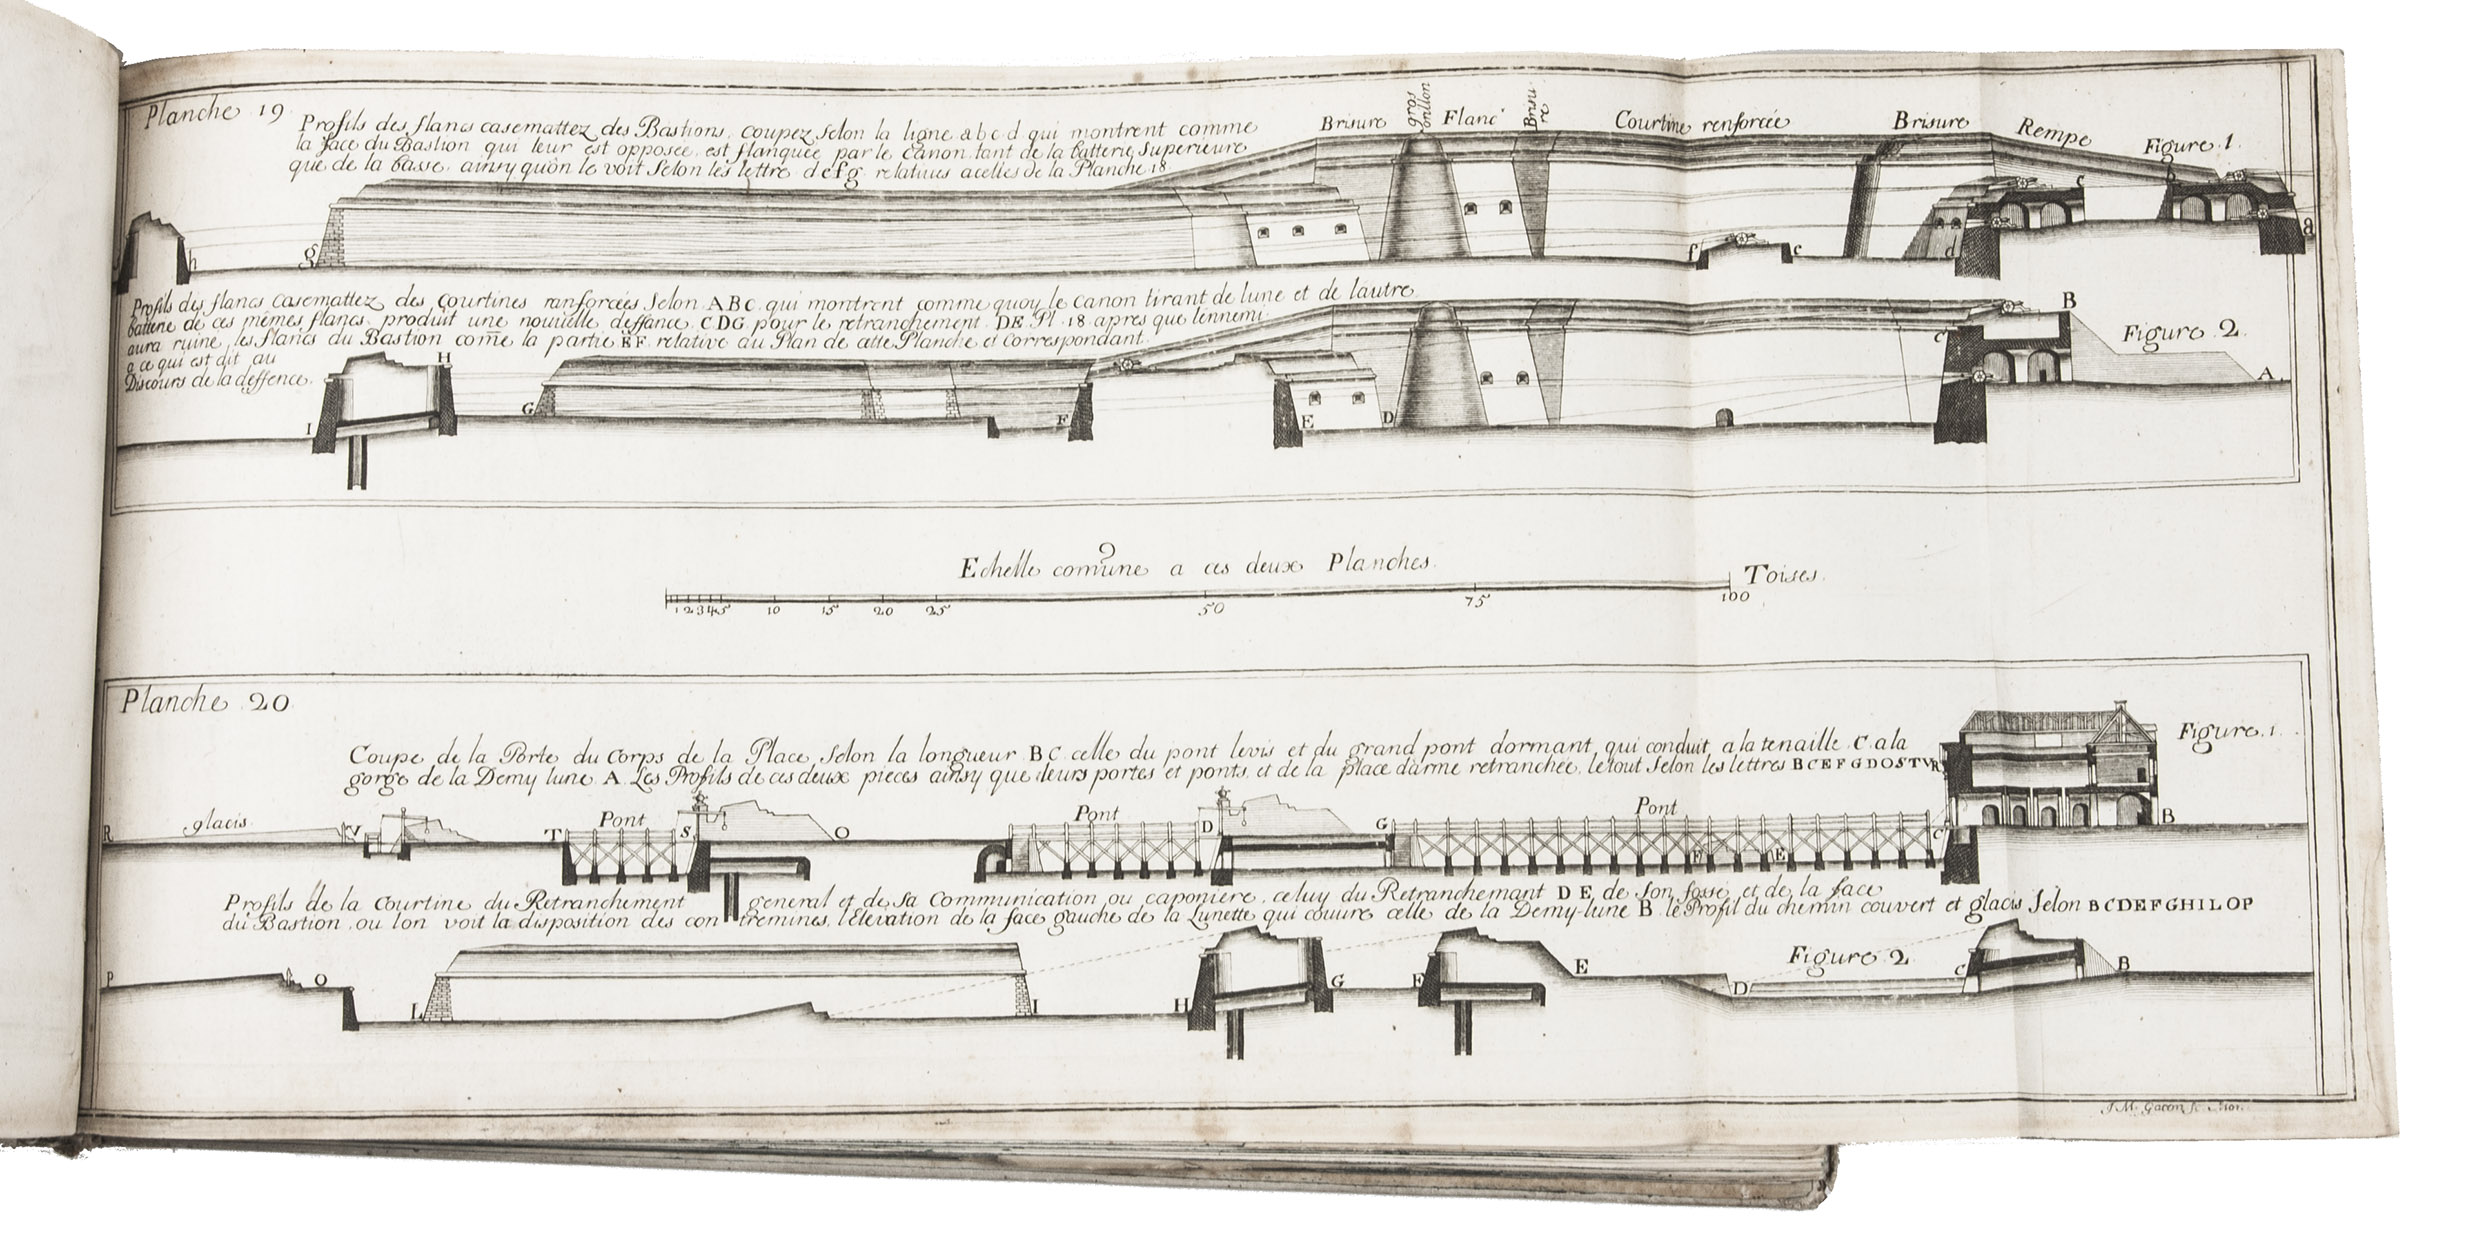 Planche 19
Profils des flancs casemattez des Bastions, coupez selon la ligne a b c d qui montrent comme
la face du Bastion qui leur est opposée, est flanquée par le canon, tant de la batterie Superieure
que de la basse, ainsy quon le voit Selon les lettre d e f g relatives acelles de la Planche 18
Brisure
gros orillon
Flanc
Brisure
Courtine renforcée
Brisure
Rempe
Figure 1
h
g
f
e
d
c
b
a
Profils des flancs Casemattez des Courtines ranforcées Selon ABC qui montrent comme quoy le canon tirant de lune et de lautre
batterie de ces mémes flancs, produit une nouvelle deffance CDG pour le retranchement DE Pl. 18 apres que lennemi
aura ruiné les flancs du Bastion come la partie EF relative au Plan de cette Planche et Correspondant
a ce qui est dit au
Discours de la deffence.
Figure 2
I
H
G
F
E
D
C
B
A
Echelle comune a ces deux Planches.
Toises.
1 2 3 4 5 10 15 20 25 50 75 100
Planche 20
Coupe de la Porte du Corps de la Place, Selon la longueur BC celle du pont levis et du grand pont dormant, qui conduit a la tenaille C a la
gorge de la Demy lune A Les Profils de ces deux pieces ainsy que leurs portes et ponts, et de la place darme retranchée, le tout Selon les lettres BCEFGDOSTVR
Figure 1
R
glacis
V
T
Pont
S
O
Pont
D
G
Pont
F
E
C
B
Profils de la Courtine du Retranchement general et de Sa Communication ou caponiere, celuy du Retranchemant DE de Son fossé et de la face
du Bastion, ou lon voit la disposition des contremines, l'Elevation de la face gauche de la Lunette qui couvre celle de la Demy-lune B le Profil du chemin couvert et glacis Selon BCDEFGHILOP
Figure 2
P
O
L
I
H
G
F
E
D
C
B
J M. Gacon